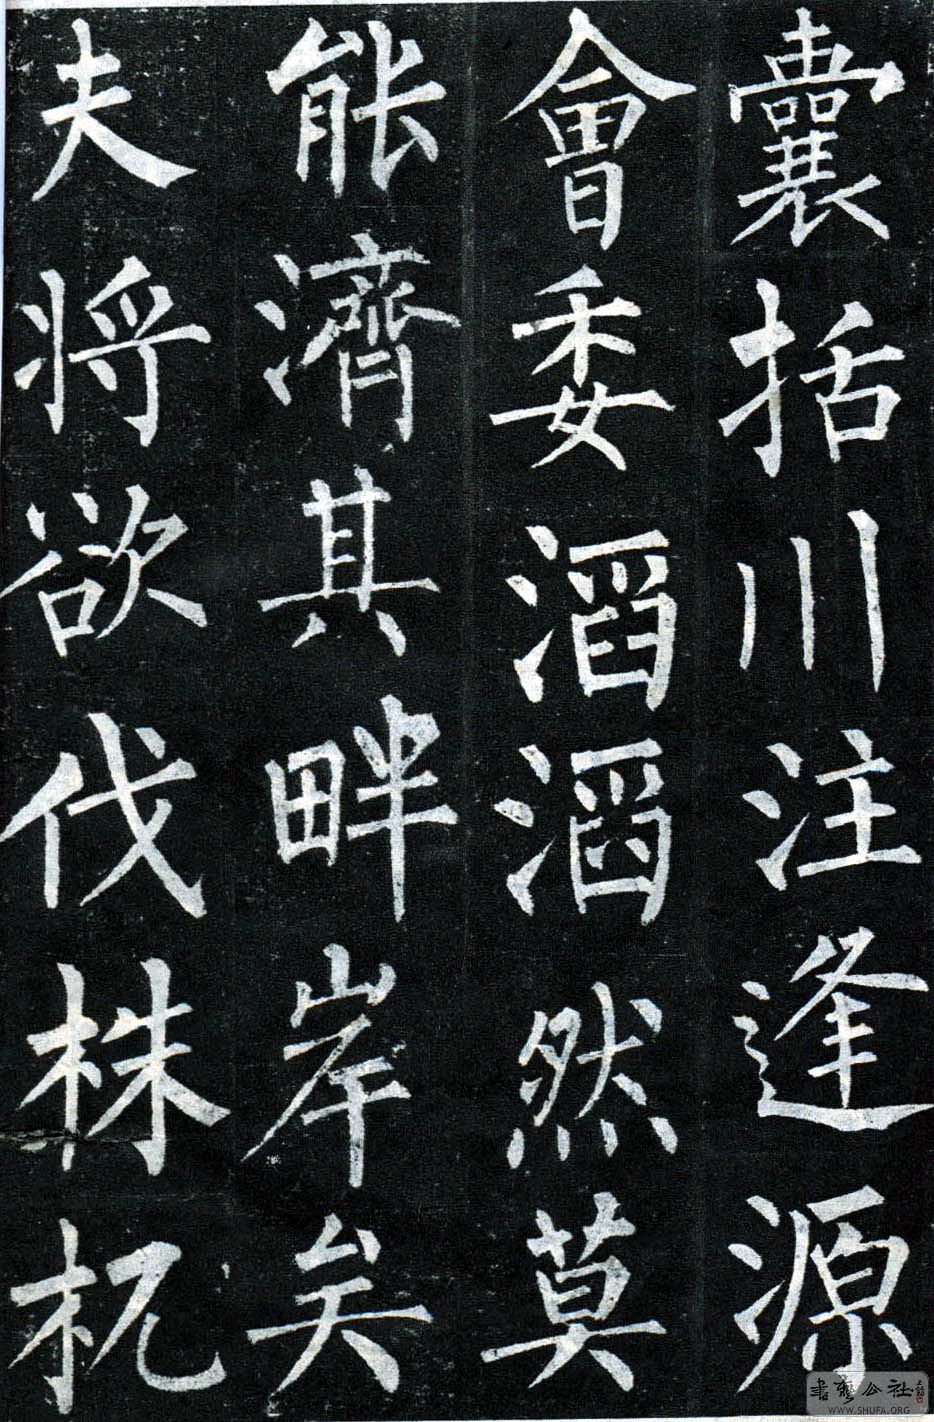 囊括川注逢源
會委滔滔然莫
能濟其畔岸矣
夫將欲伐株杌
書藝公社
WWW.SHUFA.ORG